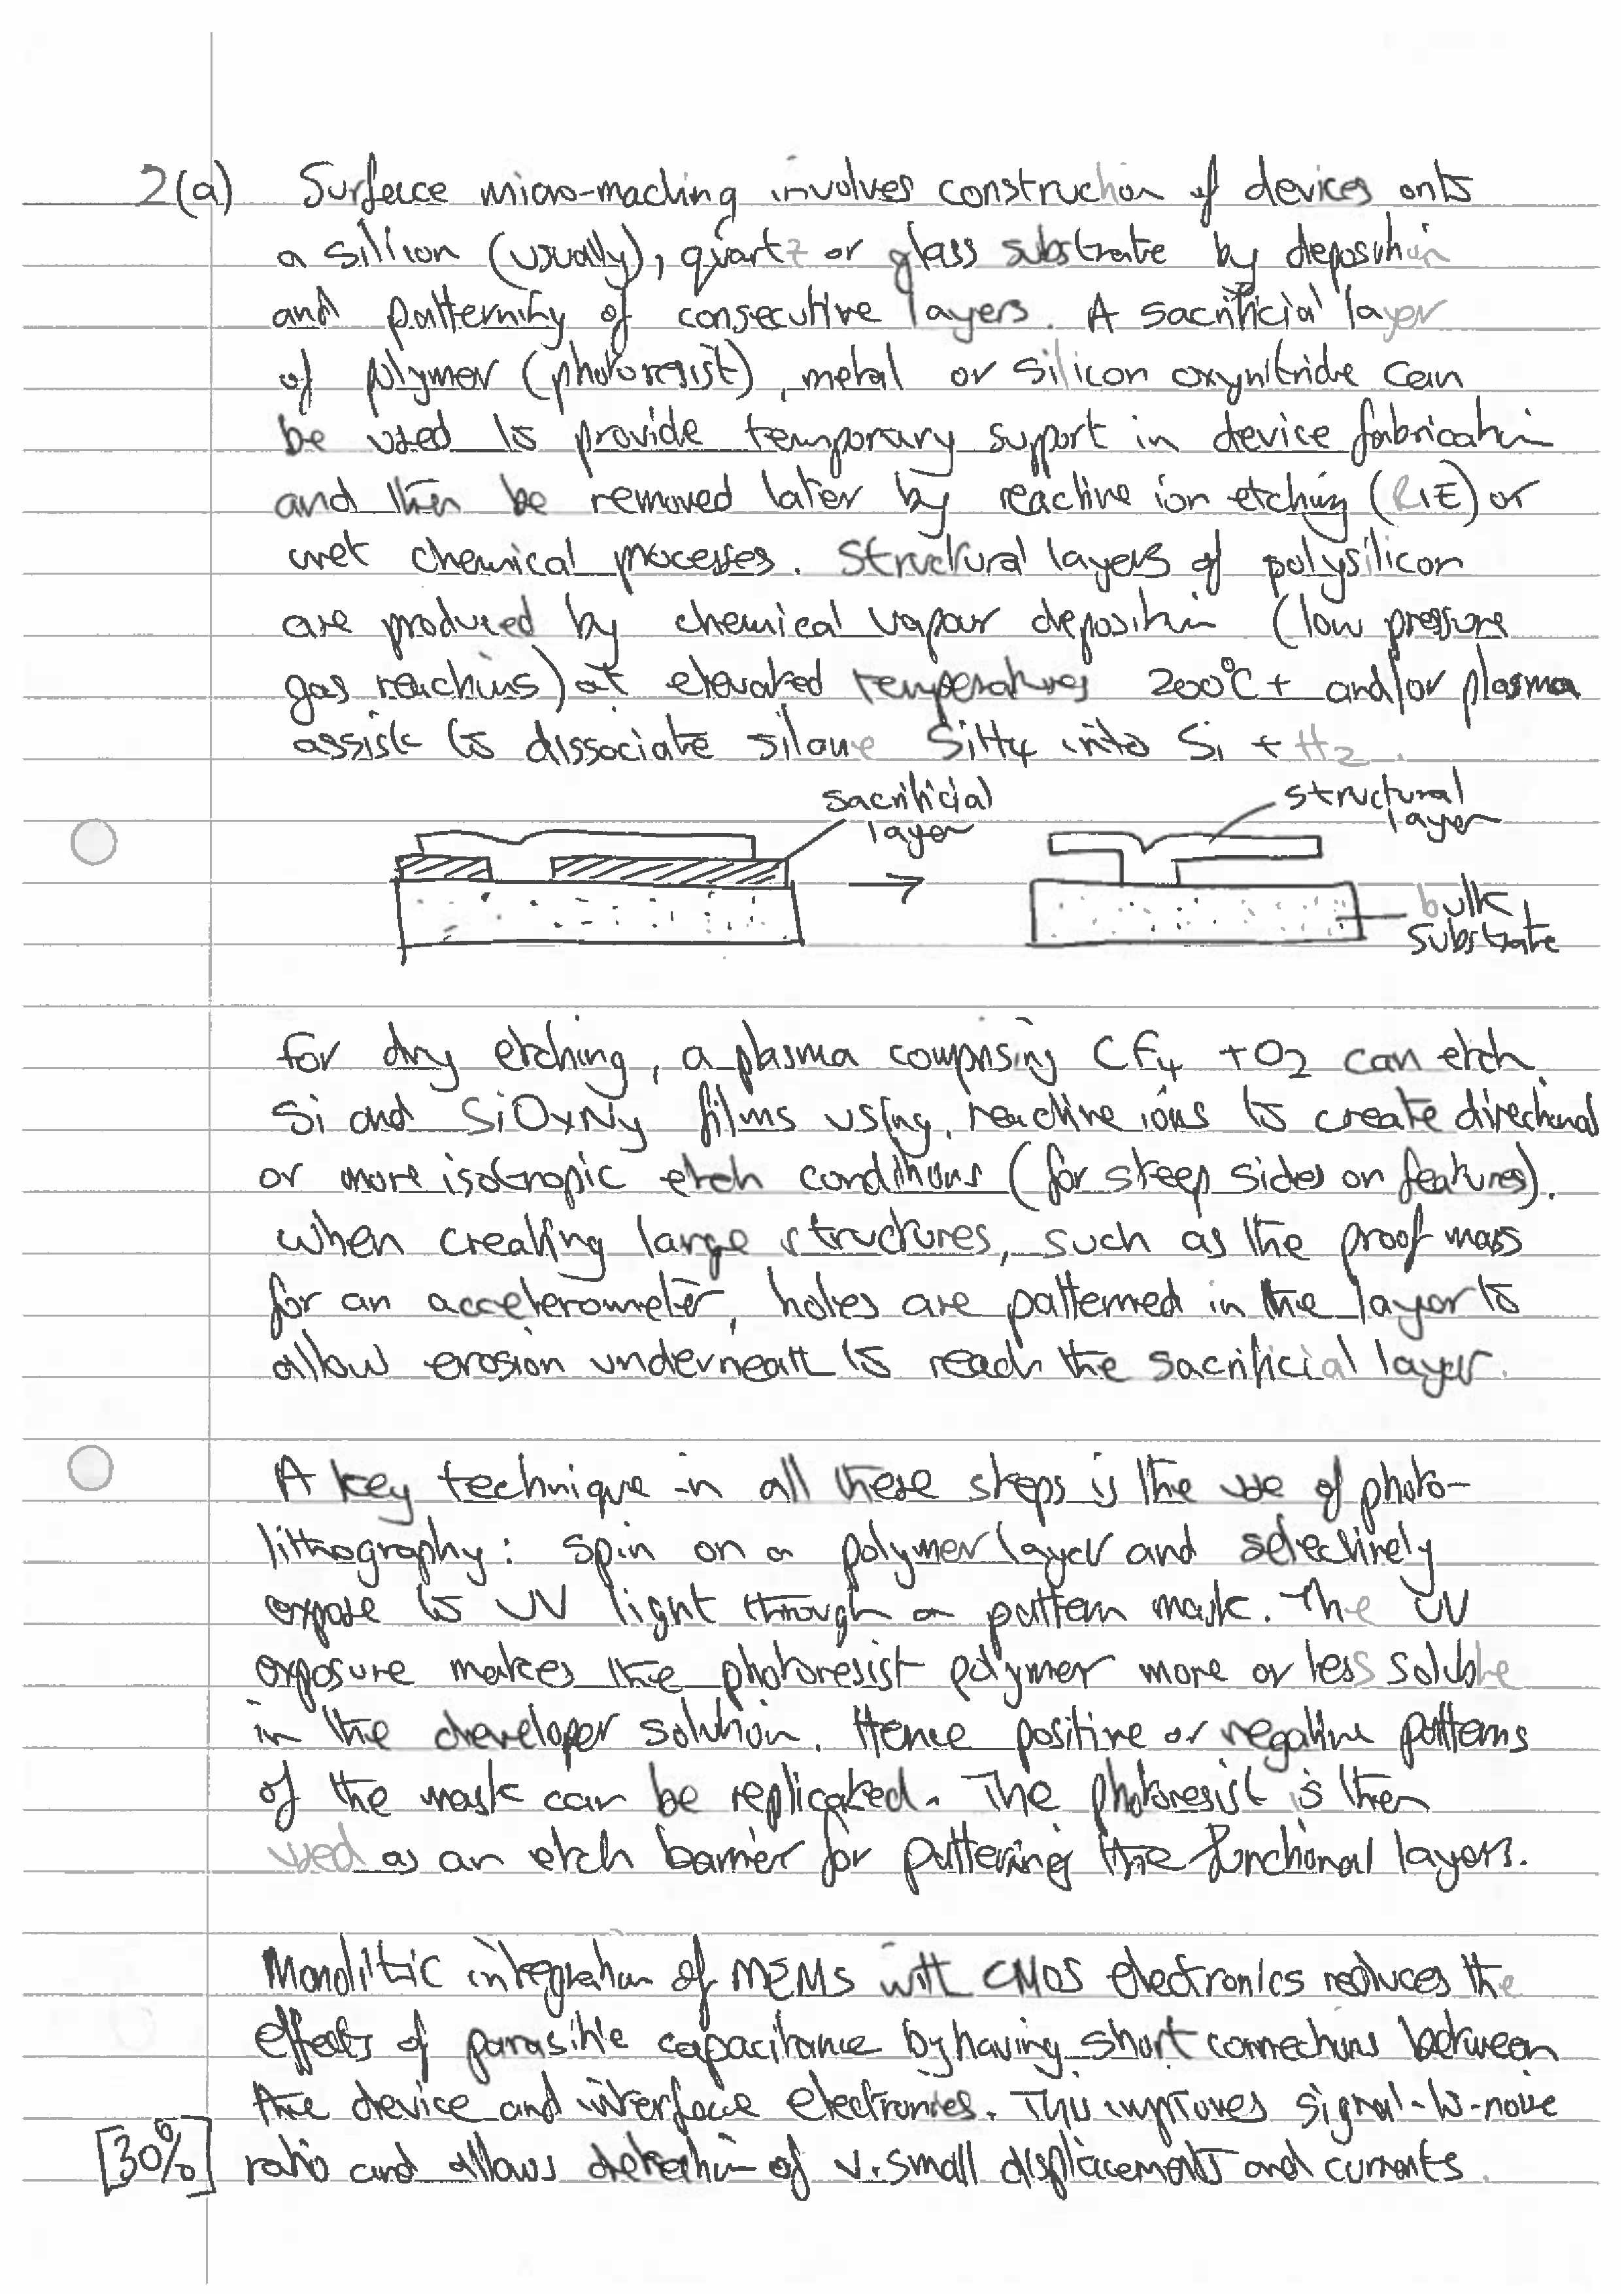 2(a) Surface micro-maching involves construction of devices onto
a silicon (usually), quartz or glass substrate by deposition
and patterning of consecutive layers. A sacrificial layer
of polymer (photoresist), metal or silicon oxynitride can
be used to provide temporary support in device fabrication
and then be removed later by reactive ion etching (RIE) or
wet chemical processes. Structural layers of polysilicon
are produced by chemical vapour deposition (low pressure
gas reactions) at elevated temperatures 200°C+ and/or plasma
assist to dissociate silane SiH4 into Si + H2.
sacrificial
layer
structural
layer
bulk
substrate
For dry etching, a plasma comprising CF4 + O2 can etch
Si and SiOxNy films using reactive ions to create directional
or more isotropic etch conditions (for steep sides on features).
When creating large structures, such as the proof mass
for an accelerometer, holes are patterned in the layer to
allow erosion underneath to reach the sacrificial layer.
A key technique in all these steps is the use of photo-
lithography: spin on a polymer layer and selectively
expose to UV light through a pattern mask. The UV
exposure makes the photoresist polymer more or less soluble
in the developer solution. Hence positive or negative patterns
of the mask can be replicated. The photoresist is then
used as an etch barrier for pattering the functional layers.
Monolithic integration of MEMS with CMOS electronics reduces the
effects of parasitic capacitance by having short connections between
the device and interface electronics. This improves signal-to-noise
[30%] ratio and allows detection of v. small displacements and currents.